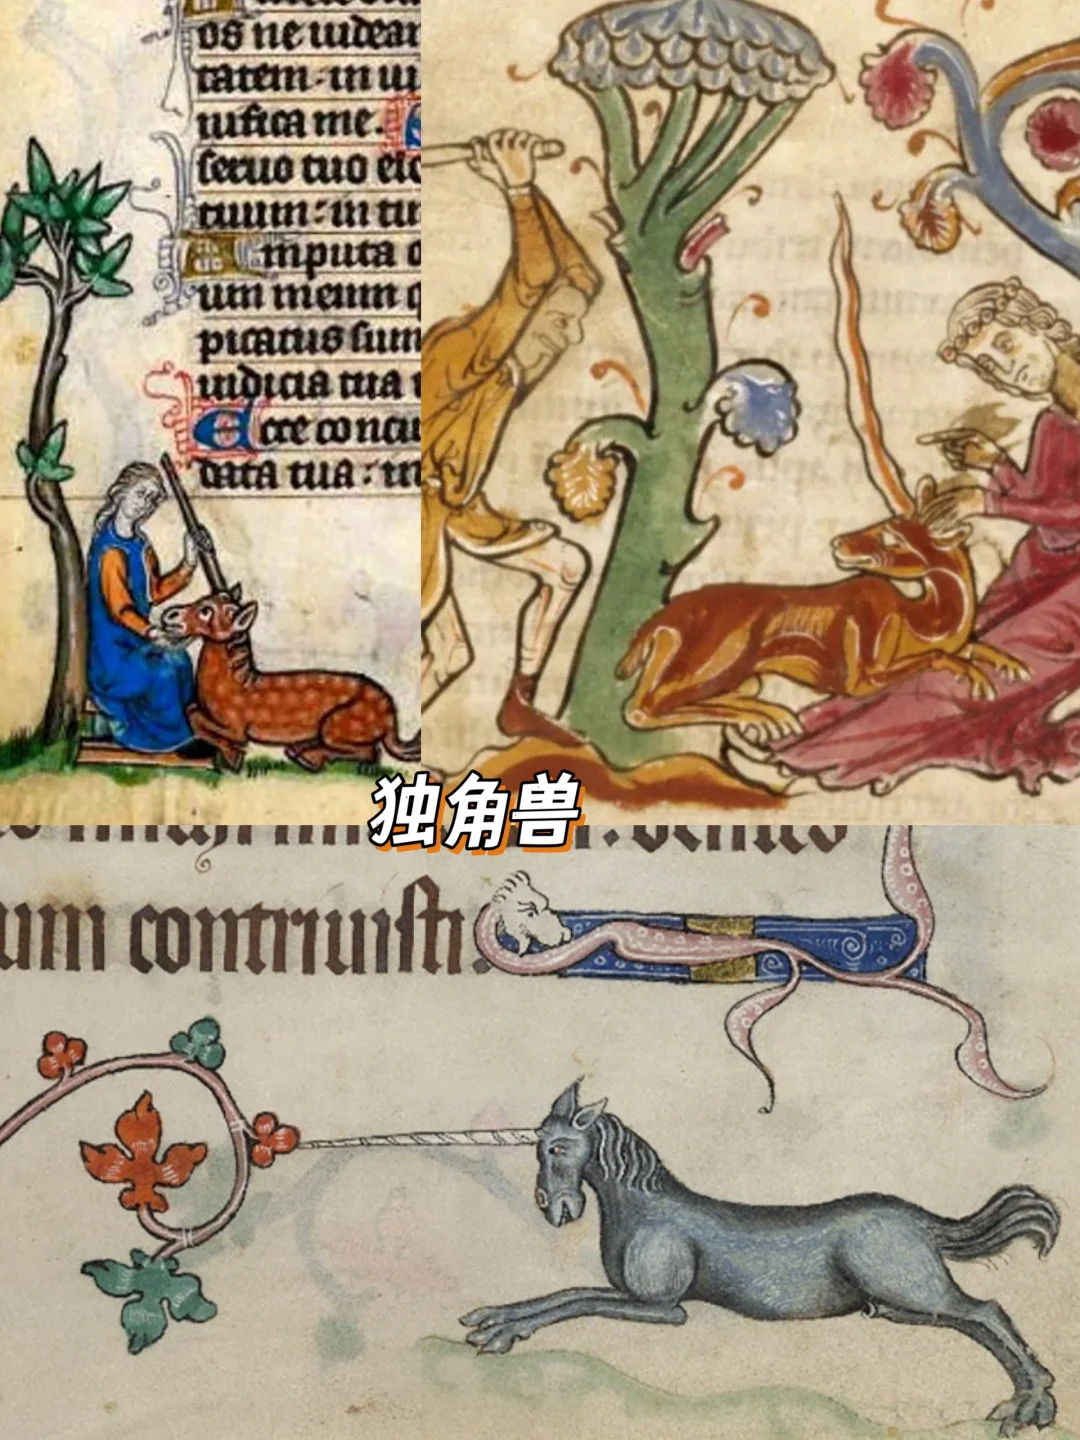 os ne uidean
tatem in ui
uifica me.
seruo tuo elo
tuum in tu
Amputa o
um meum q
picatus sum
iudicia tua i
Ecce concu
data tua in
独角兽
um contriuisti.